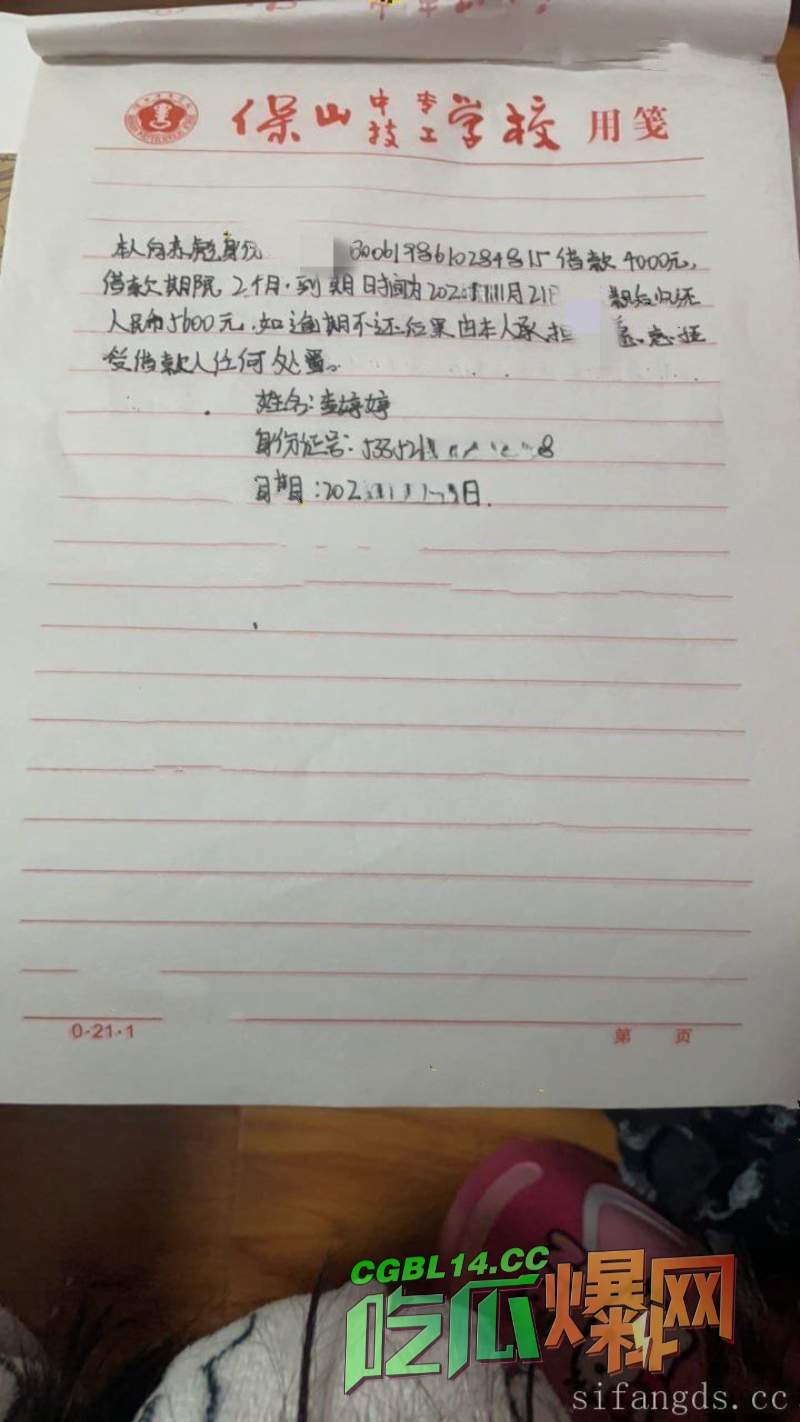 保山中专技工学校用笺
本人向 身份 3006198610284815借款4000元,
借款期限2个月.到期日时间为202 11月21
人民币5600元.如逾期不还后果由本人承担
受借款人任何处置。
姓名:李婷婷
身份证号:533521 8
日期:202 日.
0·21·1
第 页
CGBL14.CC
吃瓜爆网
sifangds.cc